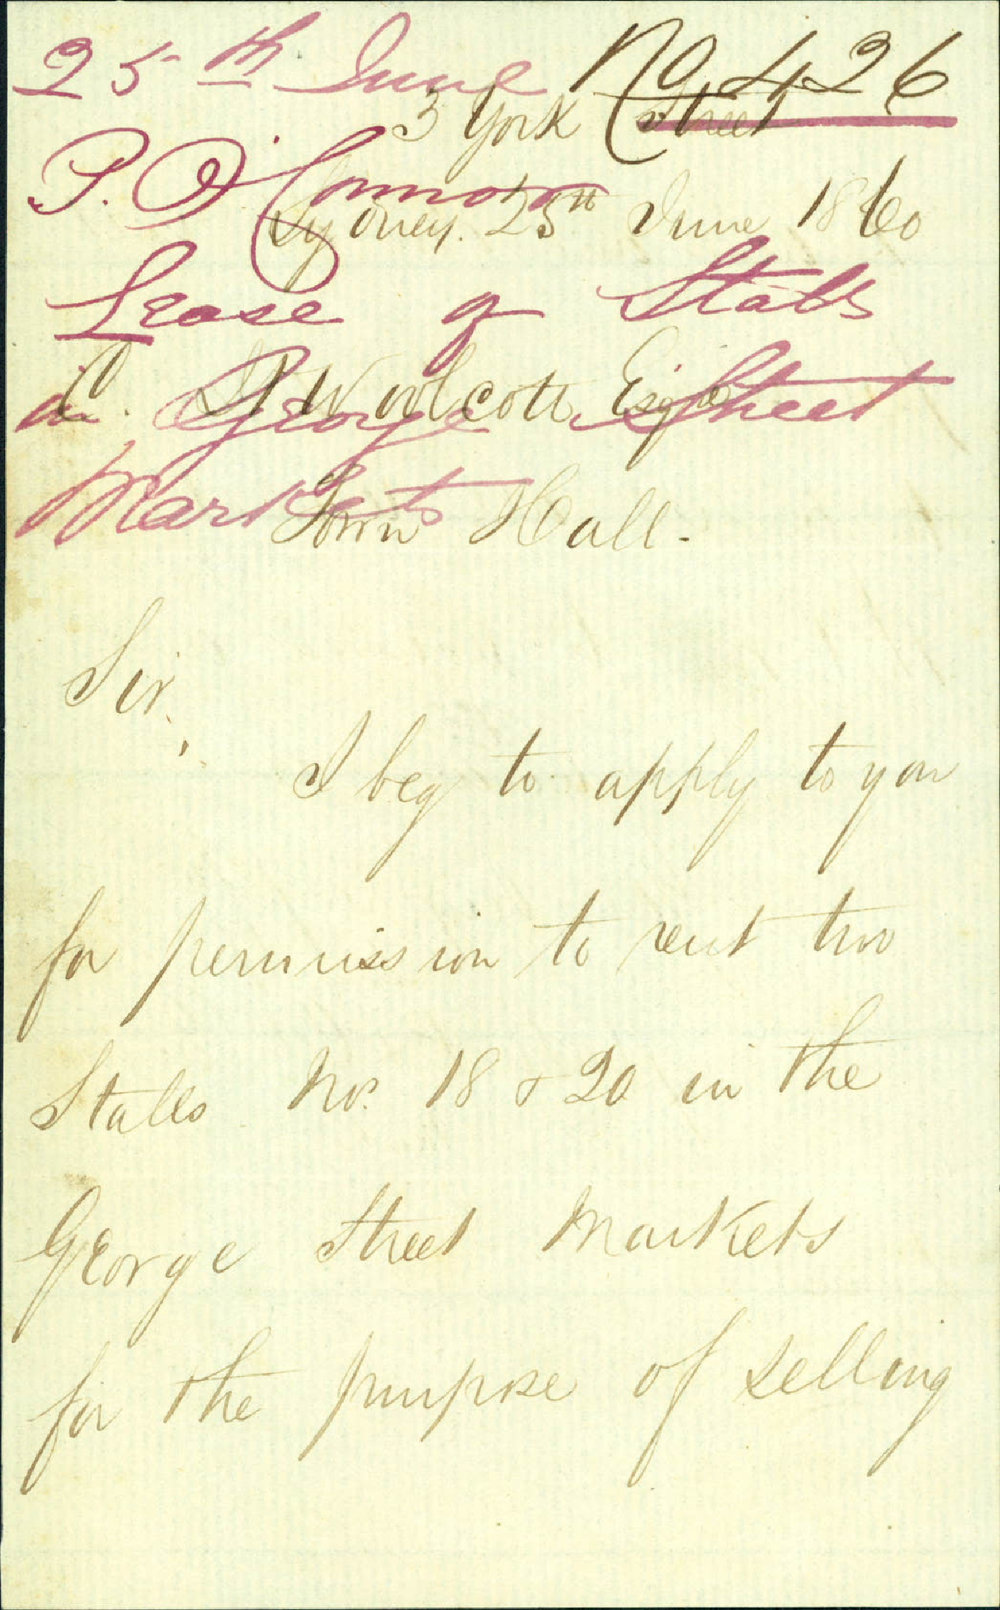 25th June No 426
3 York Street
P. O'Connor
Sydney. 25th June 1860
Lease of Stalls
C. H. Woolcott Esqre
in George Street
Markets
Town Hall.
Sir,
I beg to apply to you
for permission to rent two
Stalls No. 18 & 20 in the
George Street Markets
for the purpose of selling